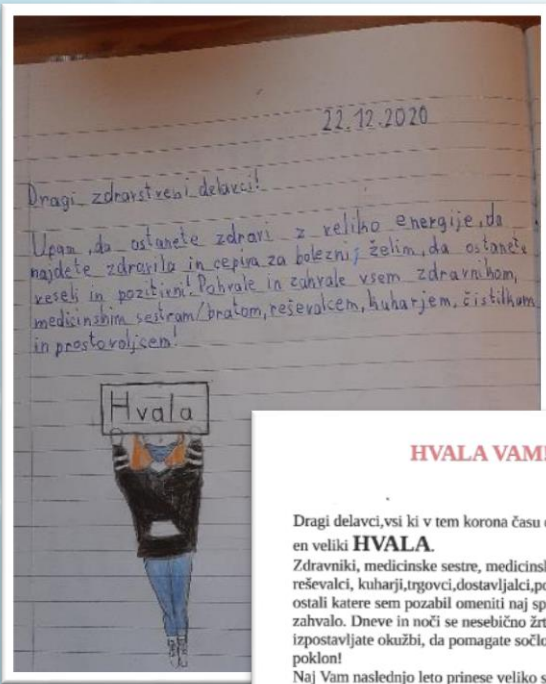 22.12.2020
Dragi zdravstveni delavci!
Upam, da ostanete zdravi z veliko energije, da
najdete zdravila in cepiva za bolezni, želim, da ostanete
veseli in pozitivni! Pohvale in zahvale vsem zdravnikom,
medicinskim sestram/bratom, reševalcem, kuharjem, čistilkam
in prostovoljcem!
Hvala
HVALA VAM!
Dragi delavci,vsi ki v tem korona času
en veliki HVALA.
Zdravniki, medicinske sestre,
reševalci, kuharji,trgovci,dostavljalci,
ostali katere sem pozabil omeniti naj
zahvalo. Dneve in noči se nesebično
izpostavljate okužbi, da pomagate
poklon!
Naj Vam naslednjo leto prinese veliko